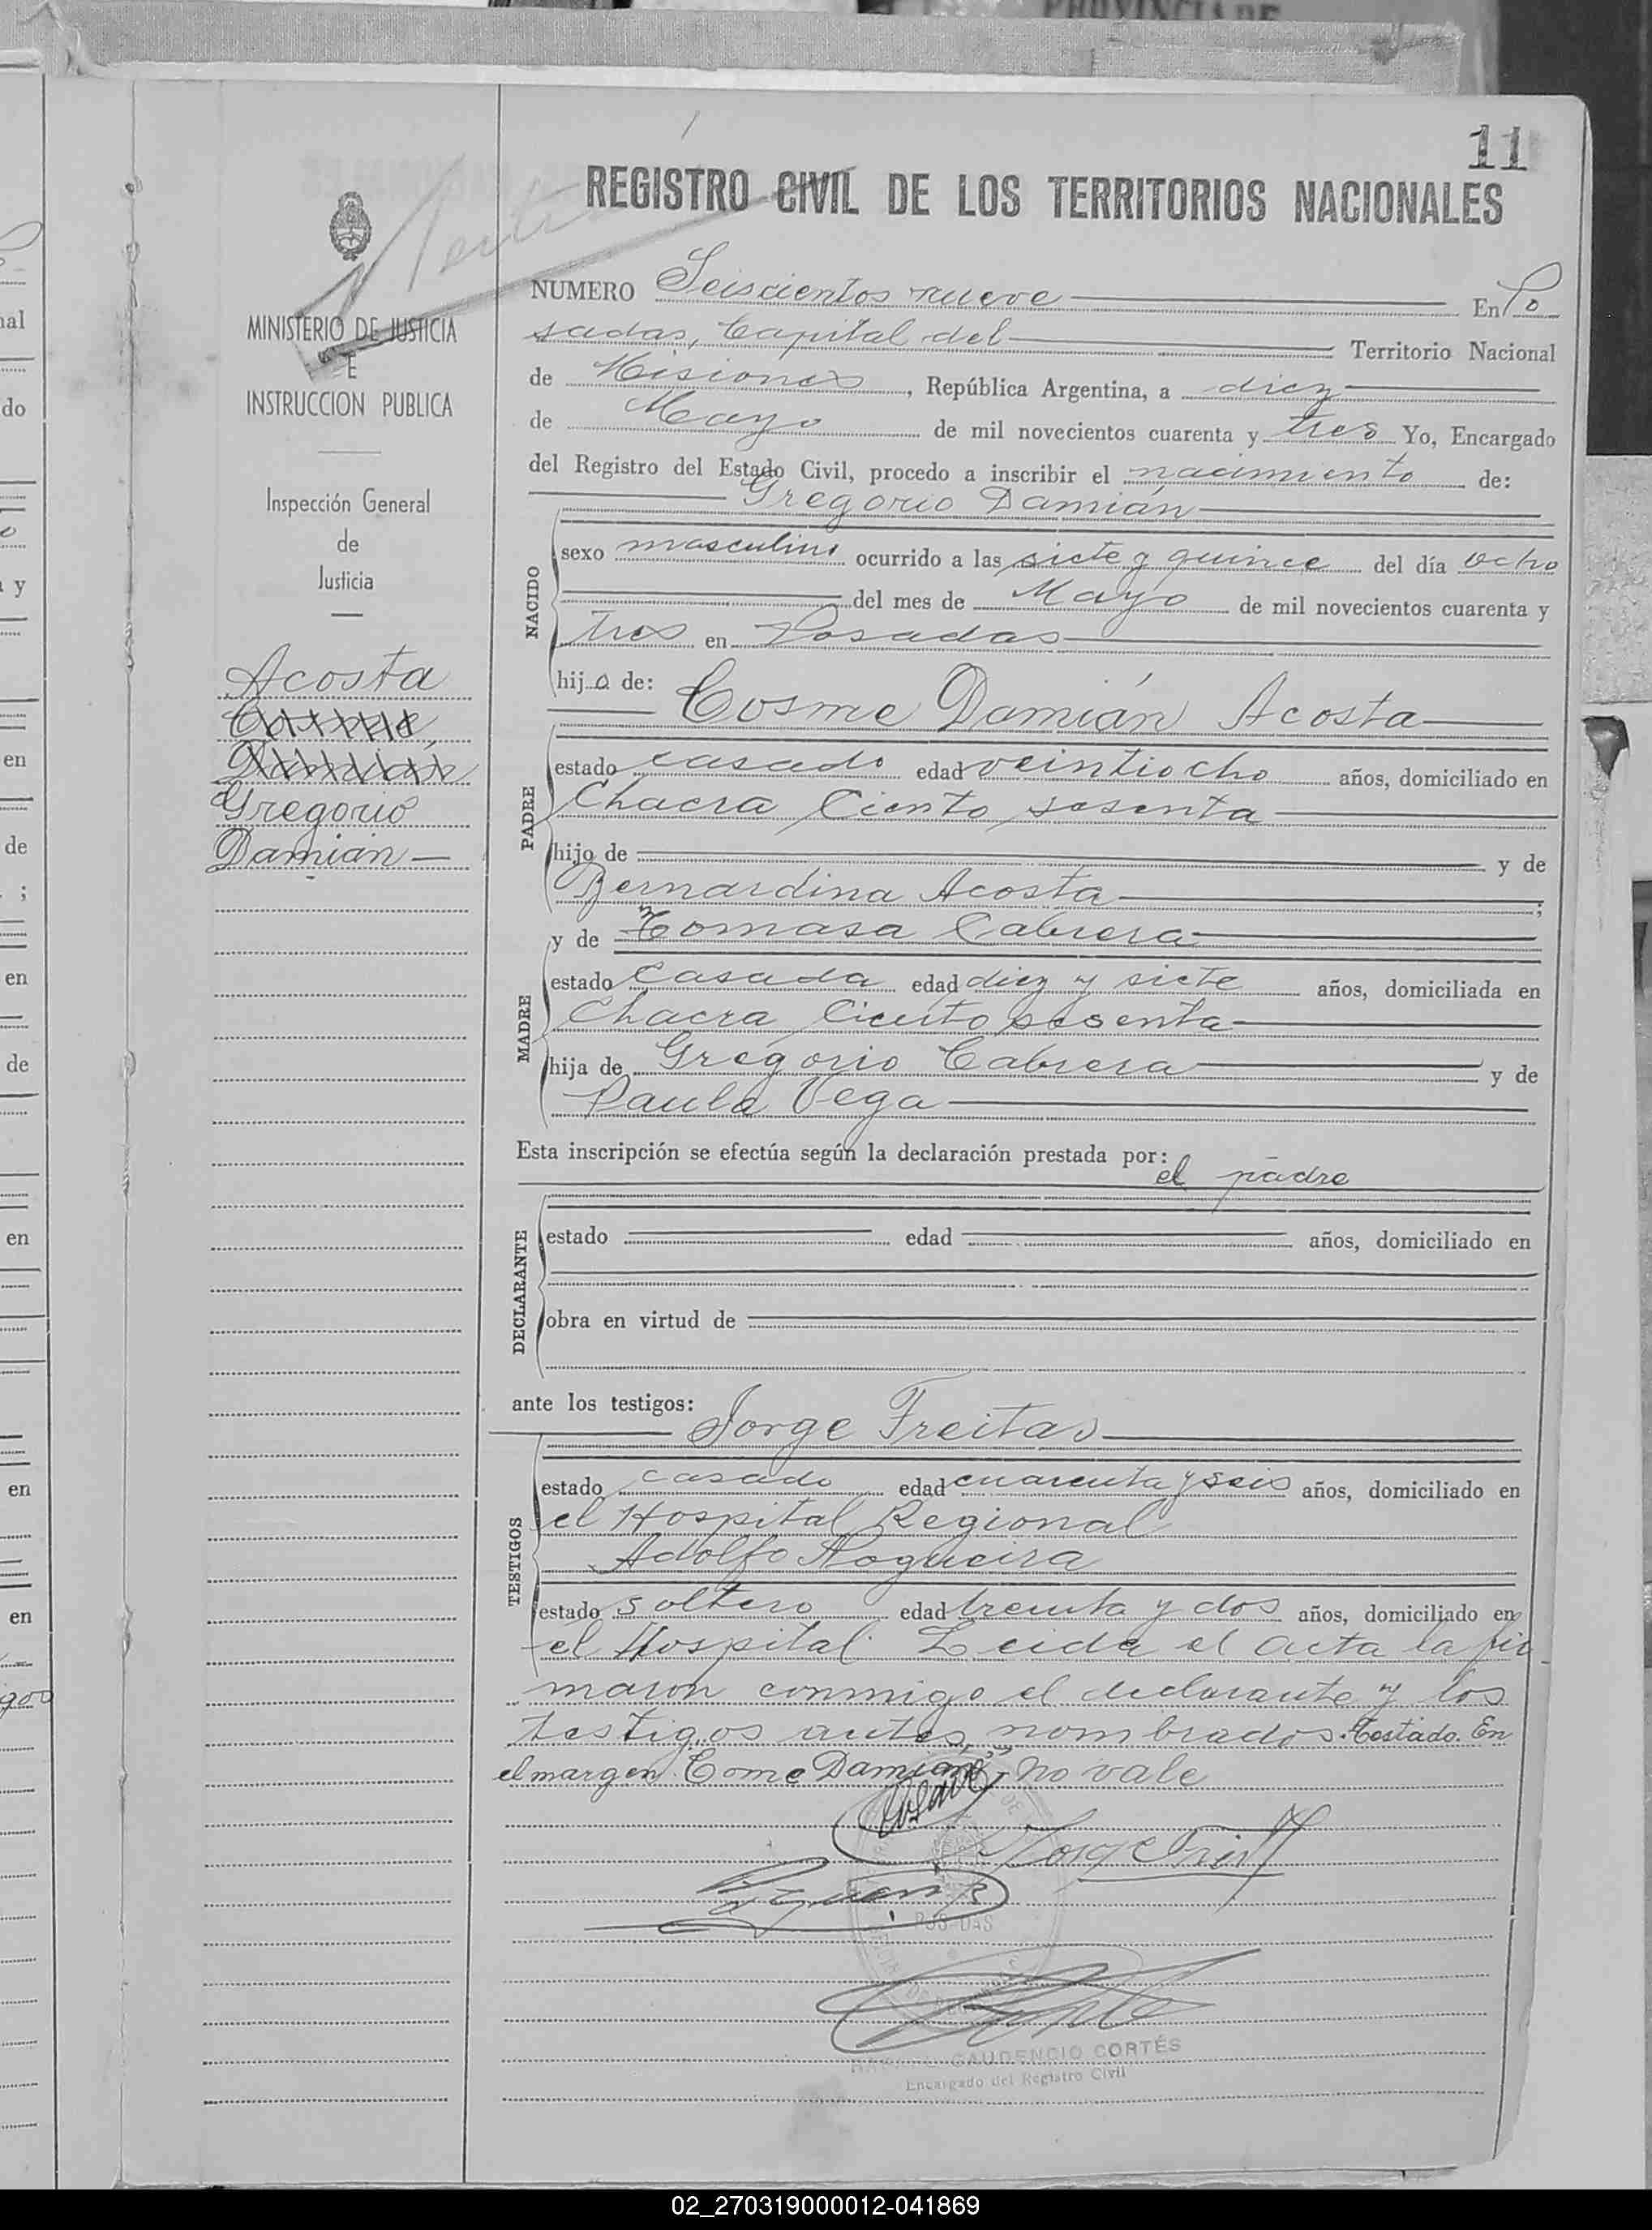 PROVINCIA DE
11
REGISTRO CIVIL DE LOS TERRITORIOS NACIONALES
MINISTERIO DE JUSTICIA
E
INSTRUCCION PUBLICA
Inspección General
de
Justicia
Acosta
Cosme,
Damián
Gregorio
Damián —
NUMERO Seiscientos nueve En Po
sadas, Capital del Territorio Nacional
de Misiones, República Argentina, a diez
de Mayo de mil novecientos cuarenta y tres Yo, Encargado
del Registro del Estado Civil, procedo a inscribir el nacimiento de:
Gregorio Damián
NACIDO
sexo masculino ocurrido a las siete y quince del día ocho
del mes de Mayo de mil novecientos cuarenta y
tres en Posadas
hijo de:
Cosme Damián Acosta
PADRE
estado casado edad veintiocho años, domiciliado en
Chacra Ciento sesenta
hijo de y de
Bernardina Acosta ;
y de Tomasa Cabrera
MADRE
estado casada edad diez y siete años, domiciliada en
Chacra Ciento sesenta
hija de Gregorio Cabrera y de
Paula Vega
Esta inscripción se efectúa según la declaración prestada por:
el padre
DECLARANTE
estado edad años, domiciliado en
obra en virtud de
ante los testigos:
Jorge Freitas
TESTIGOS
estado casado edad cuarenta y seis años, domiciliado en
el Hospital Regional
Adolfo Nogueira
estado soltero edad treinta y dos años, domiciliado en
el Hospital. Leida el acta la fir
maron conmigo el declarante y los
testigos antes nombrados. Testado. En
el margen. Come Damian - No vale
GAUDENCIO CORTÉS
Encargado del Registro Civil
02_270319000012-041869